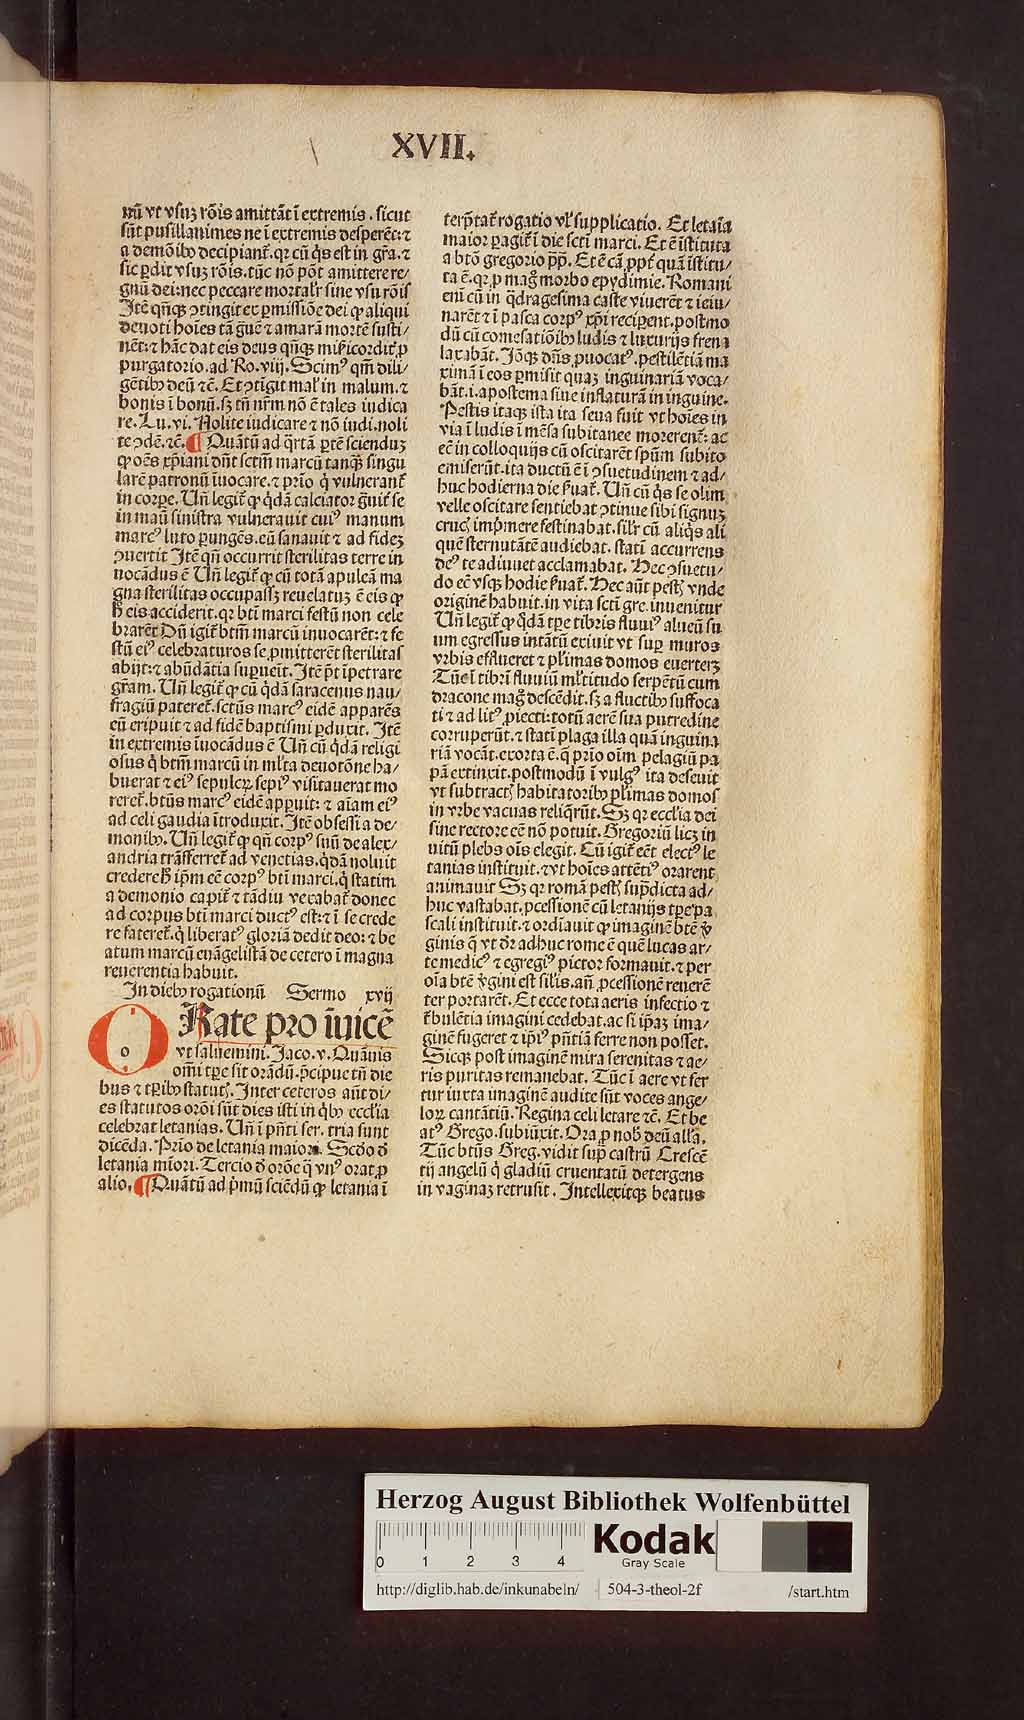 XVII.
nū vt vsuz rōis amittāt ī extremis . sicut
sūt pusillanimes ne ī extremis desperēt: ⁊
a demōibꝫ decipianť. qꝛ cū q̇s est in gr̄a. ⁊
sic ꝑdit vsuz rōis. tūc nō pōt amittere re/
gnū dei: nec peccare mortalꝛ̄ sine vsu rōis
Itē qn̄qꝫ ꝯtingit ex ꝑmissiōe dei ꝙ aliqui
deuoti hoīes tā g̈uē ⁊ amarā mortē susti/
nēt: ⁊ hāc dat eis deus qn̄qꝫ mīẜicordiť ꝓ
purgatorio. ad Ro. viij. Scimꝰ qm̄ dili/
gētibꝫ deū ⁊c̄. Et ꝯtīgit mal' in malum. ⁊
bonis ī bonū. sꝫ tn̄ nr̄m nō ē tales iudica
re. Lu. vi. Nolite iudicare ⁊ nō iudi. noli
te ꝯdē. ⁊c̄. ¶ Quātū ad q̈rtā ꝑtē scienduz
ꝙ oēs xp̄iani dn̄t sctm̄ marcū tanqꝫ singu
larē patronū īuocare. ⁊ prīo q̇ vulneranť
in corꝑe. Un̄ legiť ꝙ q̇dā calciator g̈uiť se
in maū sinistra vulnerauit cuiꝰ manum
marcꝰ luto ꝑungēs. eū sanauit ⁊ ad fidez
ꝯuertit Itē qn̄ occurrit sterilitas terre in
uocādus ē Un̄ legiť ꝙ cū totā apuleā ma
gna sterilitas occupassꝫ reuelatuz ē eis ꝙ
ħ eis acciderit. qꝛ bt̄i marci festū non cele
brarēt Dū igiť bt̄m marcū inuocarēt: ⁊ fe
stū eiꝰ celebraturos se ꝓmitterēt sterilitas
abijt: ⁊ abūdātia supuēit. Itē p̄t īpetrare
gr̄am. Un̄ legiť ꝙ cū q̇dā saracenus nau/
fragiū patereť. sctūs marcꝰ eidē apparēs
eū eripuit ⁊ ad fidē baptismi ꝑduxit. Itē
in extremis īuocādus ē Un̄ cū q̇dā religi
osus q̇ bt̄m marcū in ml̄ta deuotōne ha/
buerat ⁊ eiꝰ sepulcꝝ sepiꝰ visitauerat mo
rereť. bt̄us marcꝰ eidē apꝑuit: ⁊ aīam eiꝰ
ad celi gaudia ītroduxit. Itē obsessi a de/
monibꝫ. Un̄ legiť ꝙ qn̄ corpꝰ suū de alex/
andria trāsferreť ad venetias. q̇dā noluit
credereħ ip̄m eē corpꝰ bt̄i marci. q̇ statim
a demonio capiť ⁊ tādiu vexabať donec
ad corpus bt̄i marci ductꝰ est: ⁊ ī se crede
re fatereť. q̇ liberatꝰ gloriā dedit deo: ⁊ be
atum marcū euāgelistā de cetero ī magna
reuerentia habuit.
In diebꝫ rogationū Sermo xvij
ORate pro īuicē
vt saluemini. Jaco. v. Quāuis
om̄i tꝑe sit orādū. p̄cipue tn̄ die
bus ⁊ tꝑibꝫ statutꝭ. Inter ceteros aūt di/
es statutos orōi sūt dies isti in q̇bꝫ eccl̄ia
celebrat letanias. Un̄ ī pn̄ti ser. tria sunt
dicēda. Prīo de letania maiori. Scdo ď
letania mīori. Tercio ď orōe q̄ vnꝰ orat ꝓ
alio. ¶ Quātū ad p̈mū sciēdū ꝙ letania ī
terp̄tať rogatio vl' supplicatio. Et letaīa
maior ꝑagiť ī die scti marci. Et ē īstituta
a btō gregorio pp̄. Et ē cā ꝓpť quā īstitu/
ta ē. qꝛ ꝓ mag̈ morbo epydimie. Romani
eni cū in q̈dragesima caste viuerēt ⁊ ieiu/
narēt ⁊ ī pasca corpꝰ xp̄i reciꝑent. postmo
dū cū comesatiōibꝫ ludis ⁊ luxurijs frena
laxabāt. Iōqꝫ dn̄s ꝓuocatꝰ. pestilētiā ma
ximā ī eos ꝑmisit quaz inguinariā voca/
bāt. i. apostema siue inflaturā in inguine.
Pestis itaqꝫ ista ita seua fuit vt hoīes in
via ī ludis ī mēsa subitanee morerenť: ac
eē in colloquijs cū oscitarēt sp̄um subito
emiserūt. ita ductū ē ī ꝯsuetudinem ⁊ ad/
huc hodierna die ẜuať. Un̄ cū q̇s se olim
velle oscitare sentiebat ꝯtinue sibi signuz
crucꝭ imp̈mere festinabat. sil'r cū aliq̇s ali
quē sternutātē audiebat. statī accurrens
deꝰ te adiuuet acclamabat. Hec ꝯsuetu/
do eē vsqꝫ hodie ẜuať. Hec aūt pestꝭ vnde
originē habuit. in vita scti gre. inuenitur
Un̄ legiť ꝙ q̇dā tꝑe tibris fluuiꝰ alueū su
um egressus intātū exiuit vt suꝑ muros
vrbis efflueret ⁊ pl'imas domos euerterꝫ
Tūc ī tibri fluuiū ml̄titudo serpētū cum
dracone mag̈ descēdit. sꝫ a fluctibꝫ suffoca
ti ⁊ ad litꝰ ꝓiecti: totū aerē sua putredine
corruperūt. ⁊ statī plaga illa quā inguina
riā vocāt. exorta ē. q̄ prīo oīm pelagiū pa
pā extinxit. postmodū ī vulgꝰ ita deseuit
vt subtractꝭ habitatoribꝫ pl'imas domos
in vrbe vacuas reliq̈rūt. Sꝫ qꝛ eccl̄ia dei
sine rectore eē nō potuit. Gregoriū licꝫ in
uitū plebs oīs elegit. Cū igiť eēt electꝰ le
tanias instituit. ⁊ vt hoīes attētiꝰ orarent
animauit Sꝫ qꝛ romā pestꝭ sup̄dicta ad/
huc vastabat. ꝓcessionē cū letanijs tꝑe pa
scali instituit. ⁊ ordīauit ꝙ imaginē btē v̈
ginis q̄ vt ďr adhuc rome ē quē lucas ar/
te medicꝰ ⁊ egregiꝰ pictor formauit. ⁊ per
oīa btē v̈gini est sil'is. añ ꝓcessionē reuerē
ter portarēt. Et ecce tota aeris infectio ⁊
ťbulētia imagini cedebat. ac si ip̄az ima/
ginē fugeret ⁊ ip̄iꝰ pn̄tiā ferre non posset.
Sicqꝫ post imaginē mira serenitas ⁊ ae/
ris puritas remanebat. Tūc ī aere vt fer
tur iuxta imaginē audite sūt voces ange/
loꝝ cantātiū. Regina celi letare ⁊c̄. Et be
atꝰ Grego. subiūxit. Ora ꝓ nob̄ deū all'a.
Tūc bt̄us Greg. vidit sup̄ castrū Crescē
tij angelū q̇ gladiū cruentatū detergens
in vaginaz retrusit. Intellexitqꝫ beatus
Herzog August Bibliothek Wolfenbüttel
0 1 2 3 4
Kodak
Gray Scale
http://diglib.hab.de/inkunabeln/ 504-3-theol-2f /start.htm